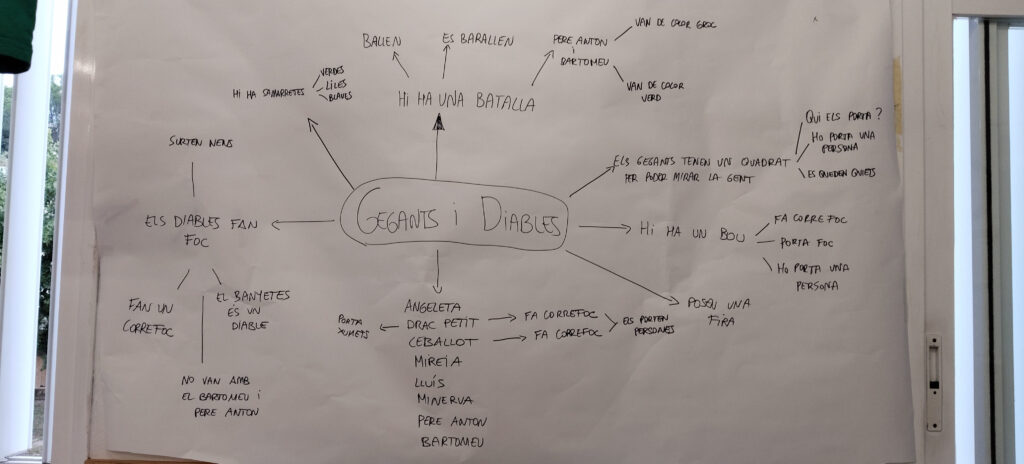 BALLEN
ES BARALLEN
PERE ANTON
i
BARTOMEU
VAN DE COLOR GROC
VAN DE COLOR
VERD
HI HA SAMARRETES
VERDES
LILES
BLAVES
HI HA UNA BATALLA
SURTEN NENS
ELS GEGANTS TENEN UN QUADRAT
PER PODER MIRAR LA GENT
QUI ELS PORTA?
HO PORTA UNA
PERSONA
ES QUEDEN QUIETS
ELS DIABLES FAN
FOC
GEGANTS i DIABLES
HI HA UN BOU
FA CORREFOC
PORTA FOC
HO PORTA UNA
PERSONA
FAN UN
CORREFOC
EL BANYETES
ÉS UN
DIABLE
NO VAN AMB
EL BARTOMEU i
PERE ANTON
PORTA
XUMETS
ANGELETA
DRAC PETIT
CEBALLOT
MIREIA
LLUÍS
MINERVA
PERE ANTON
BARTOMEU
FA CORREFOC
FA CORREFOC
ELS PORTEN
PERSONES
POSEN UNA
FIRA